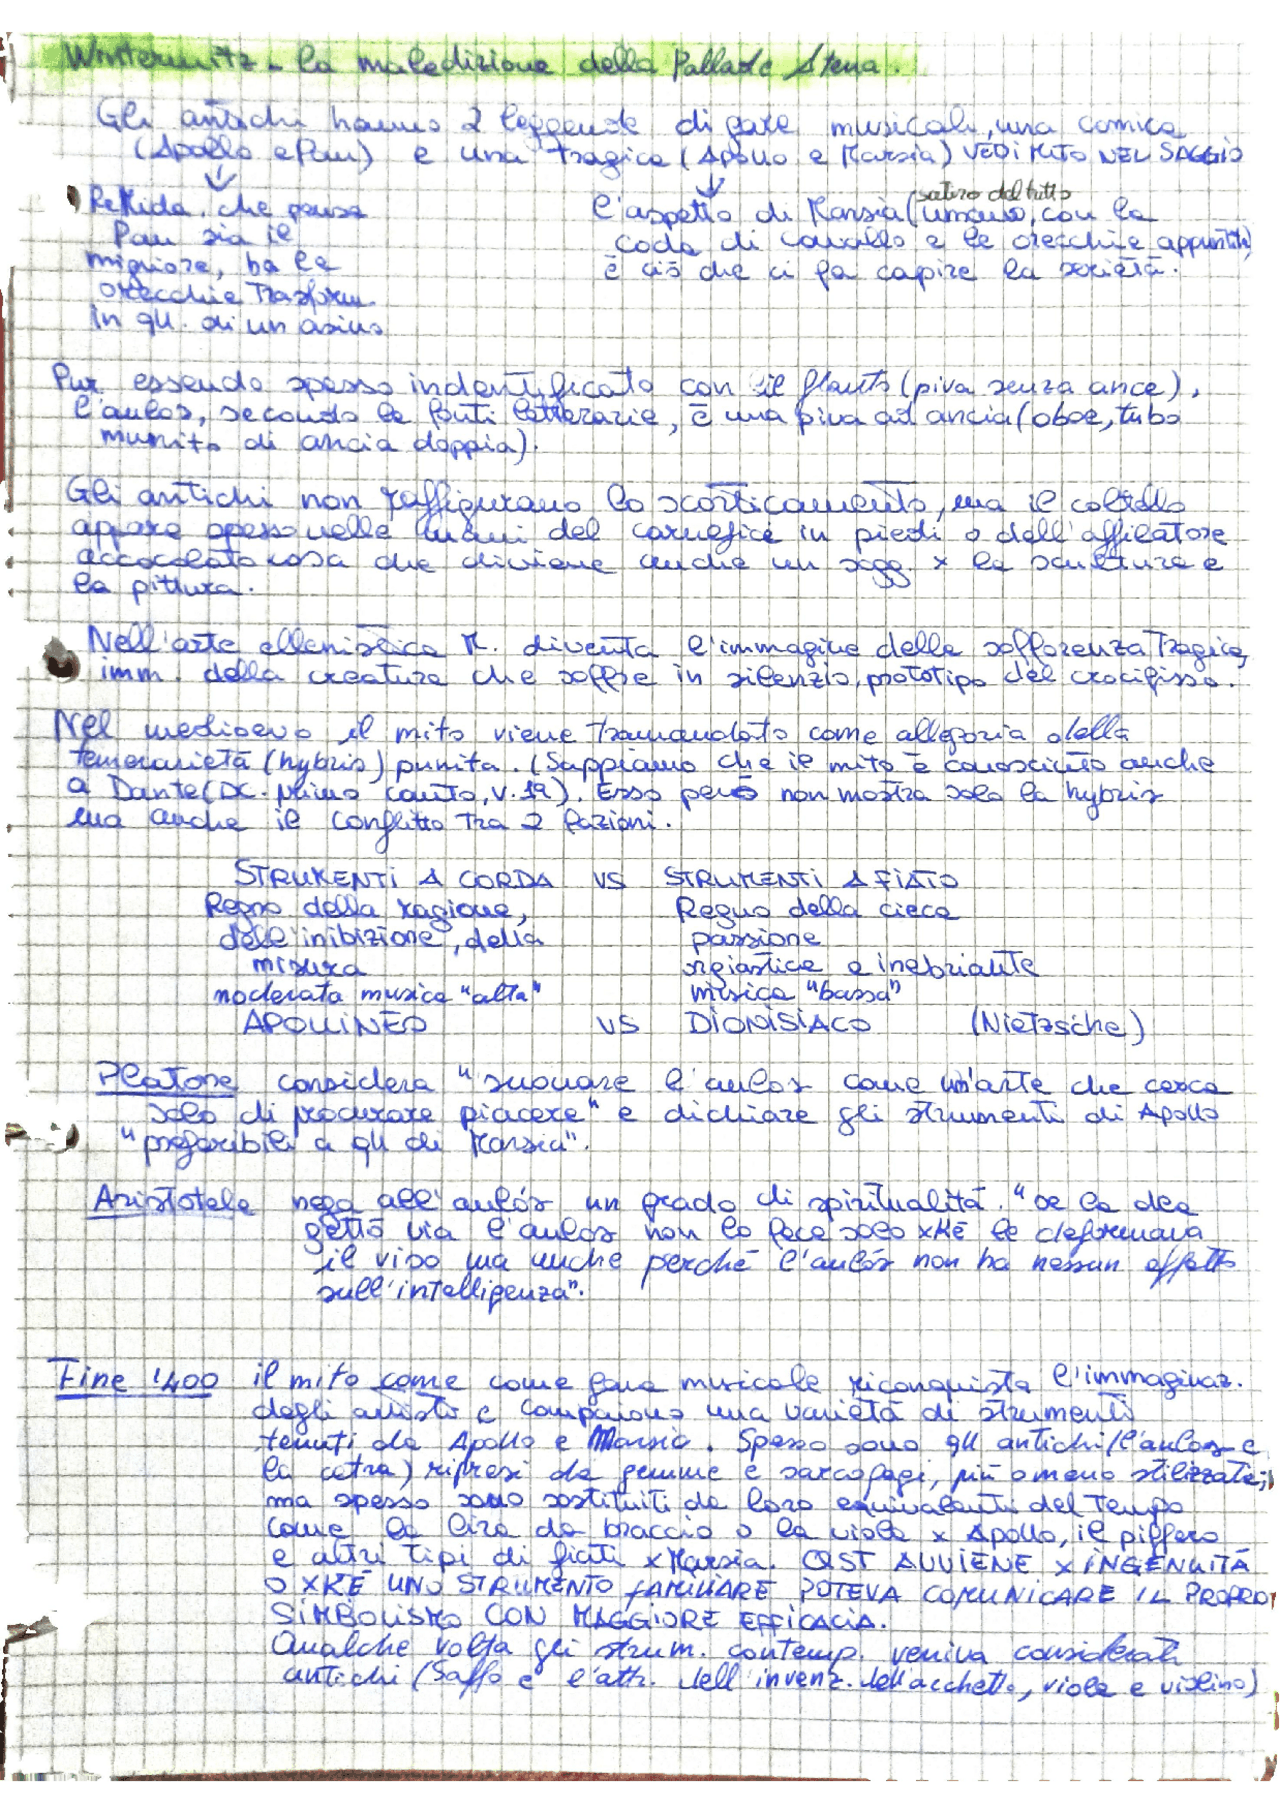 Winternitz - la maledizione della Pallade Atena.
Gli antichi hanno 2 leggende di gare musicali, una comica
(Apollo e Pan) e una tragica (Apollo e Marsia) VEDI MITO NEL SAGGIO
Re Mida, che pensa
Pan sia il
migliore, ha le
orecchie trasform.
in qll. di un asino
satiro del tutto
L'aspetto di Marsia (umano, con la
coda di cavallo e le orecchie appuntite)
è ciò che ci fa capire la società.
Pur essendo spesso indentificato con il flauto (piva senza ance),
l'aulos, secondo le fonti letterarie, è una piva ad ancia (oboe, tubo
munito di ancia doppia).
Gli antichi non raffigurano lo scorticamento, ma il coltello
appare spesso nelle mani del carnefice in piedi o dell'affilatore
accocolato cosa che diviene anche un sogg. x la scultura e
la pittura.
Nell'arte ellenistica M. diventa l'immagine della sofferenza tragica,
imm. della creatura che soffre in silenzio, prototipo del crocifisso.
Nel medioevo il mito viene tramandato come allegoria della
temerarietà (hybris) punita. (Sappiamo che il mito è conosciuto anche
a Dante (DC. primo canto, v. 19). Esso però non mostra solo la hybris
ma anche il conflitto tra 2 fazioni.
STRUMENTI A CORDA VS STRUMENTI A FIATO
Regno della ragione, Regno della cieca
dell'inibizione, della passione
misura orgiastica e inebriante
moderata musica "alta" musica "bassa"
APOLLINEO VS DIONISIACO (Nietzsche)
Platone considera "suonare l'aulos come un'arte che cerca
solo di procurare piacere" e dichiara gli strumenti di Apollo
"preferibili a qll di Marsia".
Aristotele nega all'aulós un grado di spiritualità. "se la dea
gettò via l'aulos non lo fece solo xKé le deformava
il viso ma anche perché l'aulós non ha nessun effetto
sull'intelligenza".
Fine '400 il mito come come gara musicale riconquista l'immaginaz.
degli artisti e compaiono una varietà di strumenti
tenuti da Apollo e Marsia. Spesso sono qll antichi (l'aulos e
la cetra) ripresi da gemme e sarcofagi, più o meno stilizzati;
ma spesso sono sostituiti da loro equivalenti del tempo
come la lira da braccio o la viola x Apollo, il piffero
e altri tipi di fiati x Marsia. QST AVVIENE x INGENUITÀ
O XKÉ UNO STRUMENTO FAMILIARE POTEVA COMUNICARE IL PROPRIO
SIMBOLISMO CON MAGGIORE EFFICACIA.
Qualche volta gli strum. contemp. veniva considerati
antichi (Saffo e l'attr. dell'invenz. dell'archetto, viola e violino)